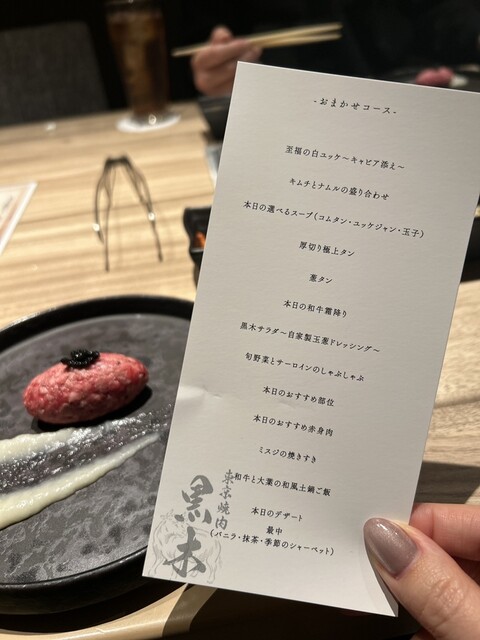 -おまかせコース-
至福の白ユッケ～キャビア添え～
キムチとナムルの盛り合わせ
本日の選べるスープ(コムタン・ユッケジャン・玉子)
厚切り極上タン
葱タン
本日の和牛霜降り
黒木サラダ～自家製玉葱ドレッシング～
旬野菜とサーロインのしゃぶしゃぶ
本日のおすすめ部位
本日のおすすめ赤身肉
ミスジの焼きすき
和牛と大葉の和風土鍋ご飯
本日のデザート
最中
(バニラ・抹茶・季節のシャーベット)
東京焼肉
黒木